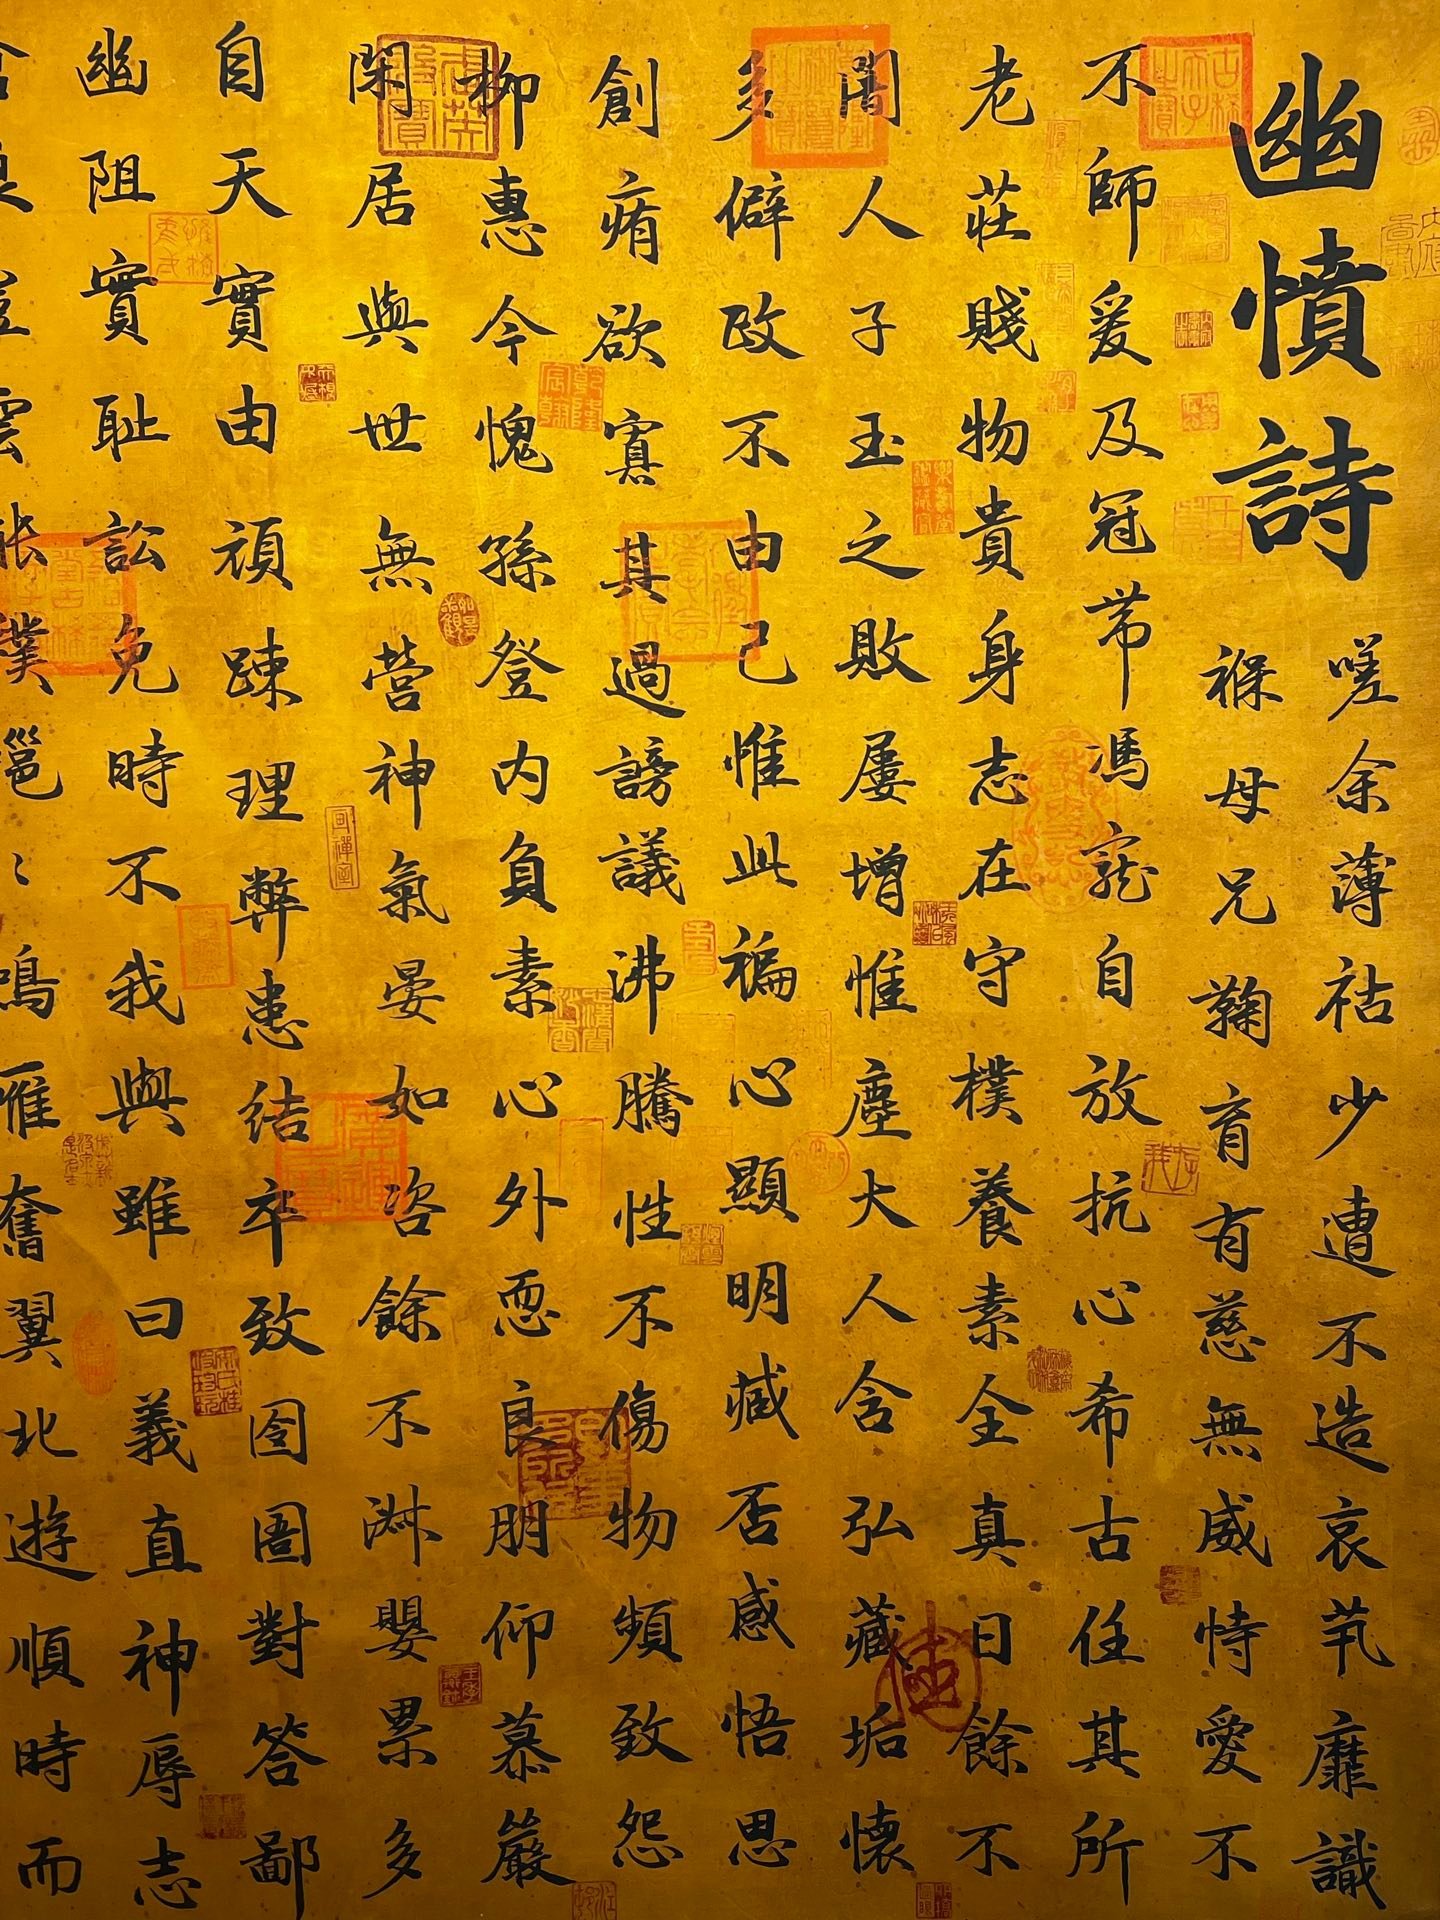 幽憤詩
嗟余薄祜少遭不造哀煢靡識
褓母兄鞠育有慈無威恃愛不
不師爰及冠帶馮寵自放抗心希古任其所
老莊賤物貴身志在守樸養素全真日餘不
闇人子玉之敗屢增惟塵大人含弘藏垢懷
多僻政不由己惟此褊心顯明臧否感悟思
創痏欲寡其過謗議沸騰性不傷物頻致怨
柳惠今愧孫登內負素心外恧良朋仰慕嚴
閑居與世無營神氣晏如咨余不淑嬰累多
自天實由頑疎理弊患結卒致囹圄對答鄙
幽阻實恥訟免時不我與雖曰義直神辱志
雲
鳴雁奮翼北遊順時而